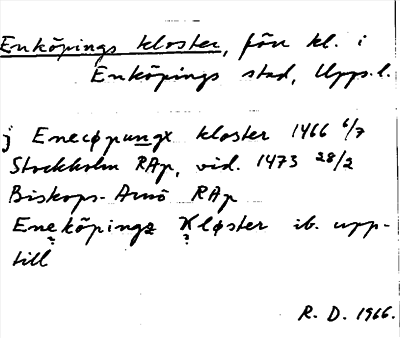 Enköpings kloster, förr kl. i
Enköpings stad, Upps.l.
j Enecøpungx kloster 1466 6/7
Stockholm RAp, vid. 1473 28/2
Biskops-Arnö RAp
Eneköpingz Kloster ib. upp-
till
R. D. 1966.